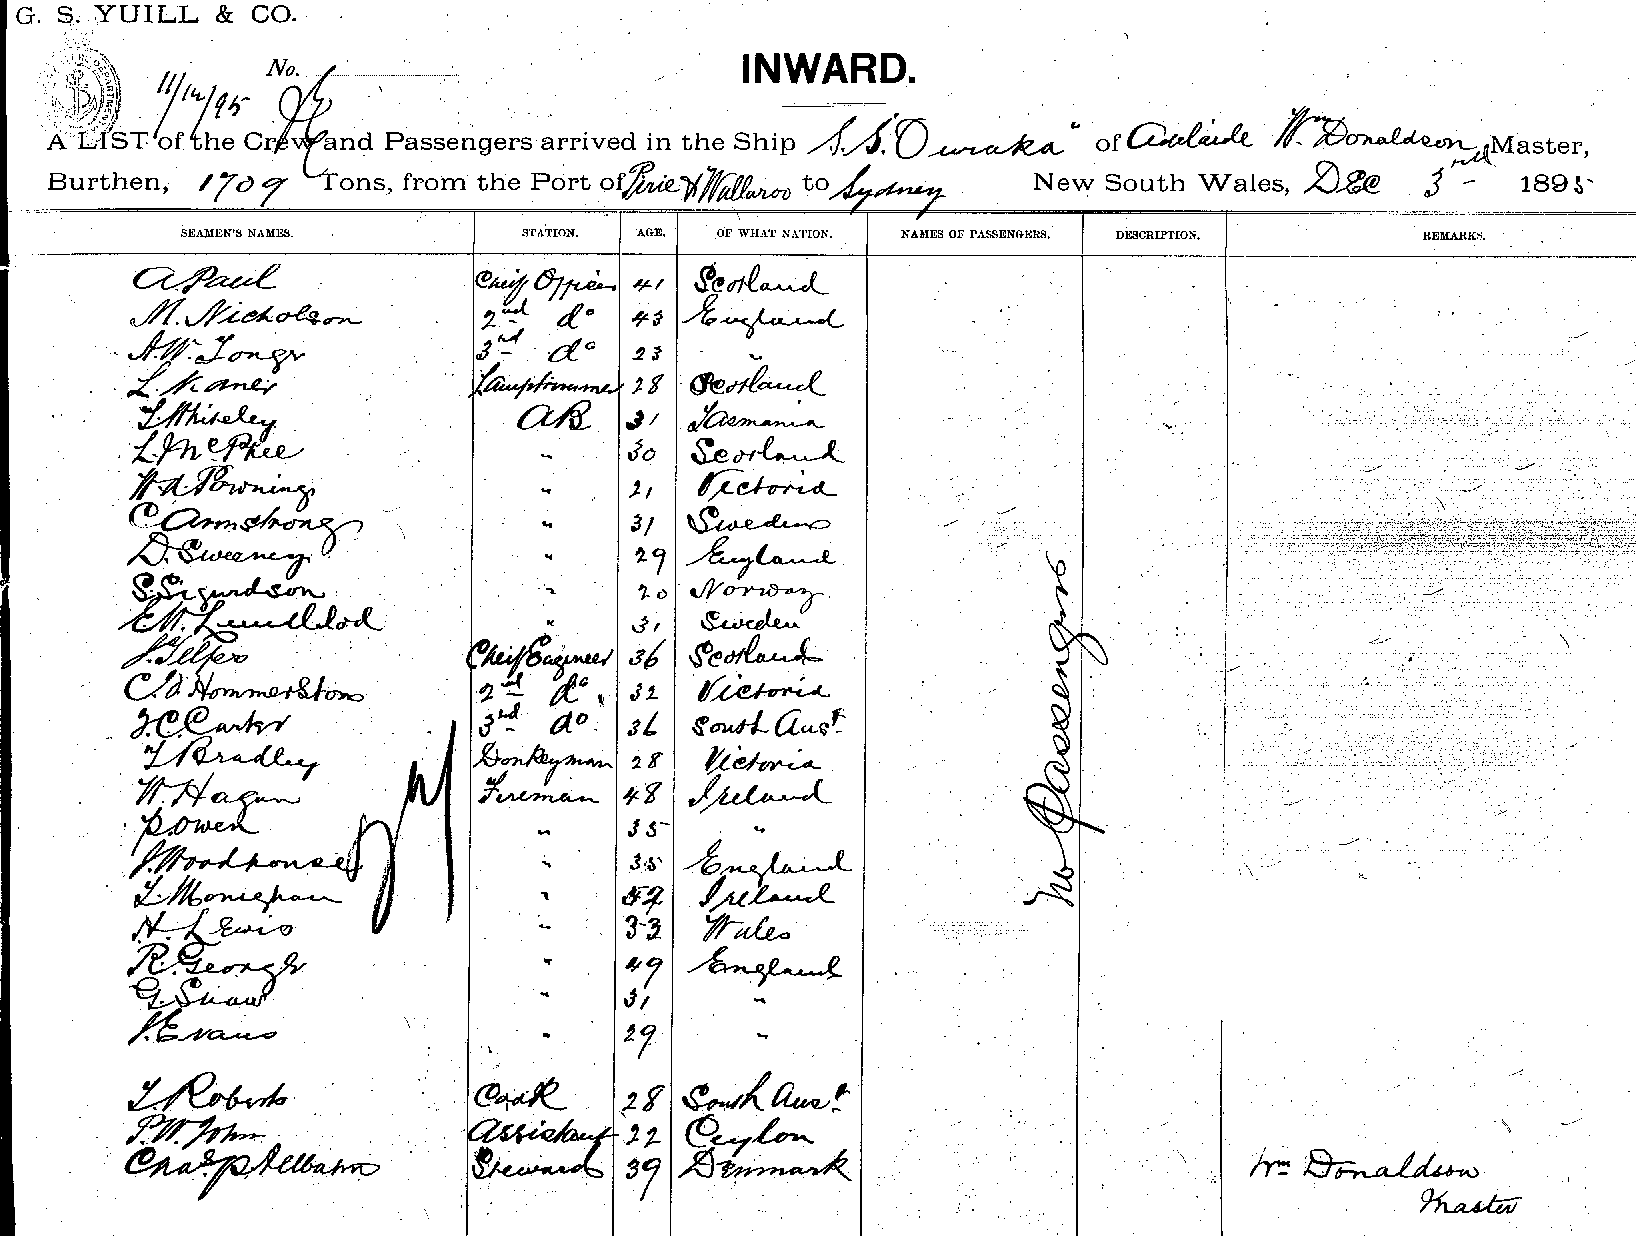 G. S. YUILL & CO.
INWARD.
No.
11/12/95
A LIST of the Crew and Passengers arrived in the Ship S.S. Owraka" of Adelaide Wm Donaldson Master,
Burthen, 1709 Tons, from the Port of Pirie & Wallaroo to Sydney New South Wales, DEC 3rd 1895
SEAMEN'S NAMES. STATION. AGE. OF WHAT NATION. NAMES OF PASSENGERS. DESCRIPTION. REMARKS.
A Paul Chief Officer 41 Scotland
M. Nicholson 2nd do 43 England
A.W. 3rd do 23 "
L. Lamptrimmer 28 Scotland
T. Whiteley AB 31 Tasmania
L. McPhee " 30 Scotland
W.A. Powning " 21 Victoria
C Armstrong " 31 Sweden
D. Sweeney " 29 England
S. Sigurdson " 20 Norway
E.W. " 31 Sweden
J. Telfer Chief Engineer 36 Scotland
C.A Hommerston 2nd do 32 Victoria
J.C. Carter 3rd do 36 South Aust
T Bradley Donkeyman 28 Victoria
W. Hagan Fireman 48 Ireland
P. Owen " 35 "
J. Woodhouse " 35 England
T. Monighan " Ireland
H. Lewis " 33 Wales
R. George " 49 England
G. Shaw " 31 "
J. Evans " 29 "
T. Roberts Cook 28 South Aust
P.W. John Assistant 22 Ceylon
Chas. P Steward 39 Denmark
No Passengers
Wm Donaldson
Master